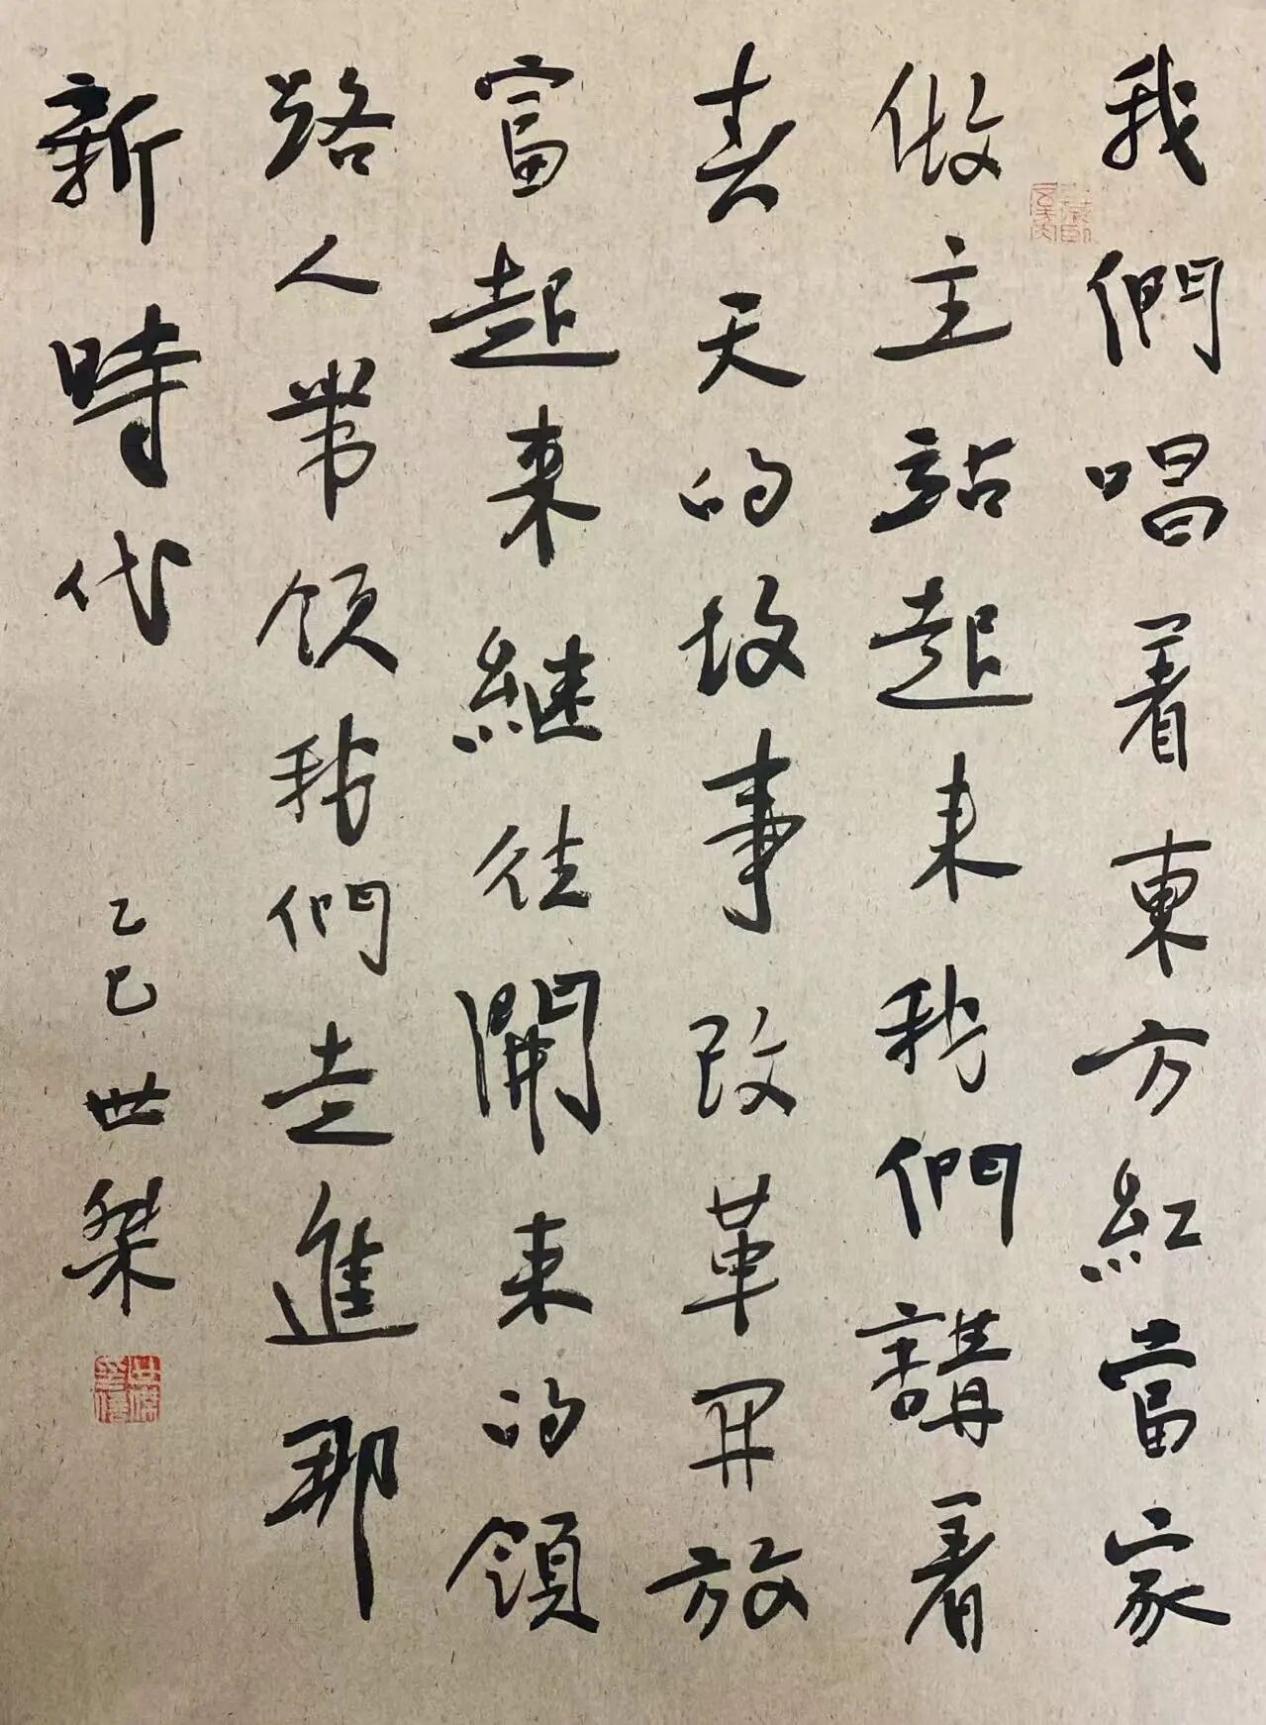 我們唱着東方紅當家
做主站起来我們講着
春天的故事改革开放
富起来継往開来的領
路人带领我們走進那
新時代
乙巳世桀